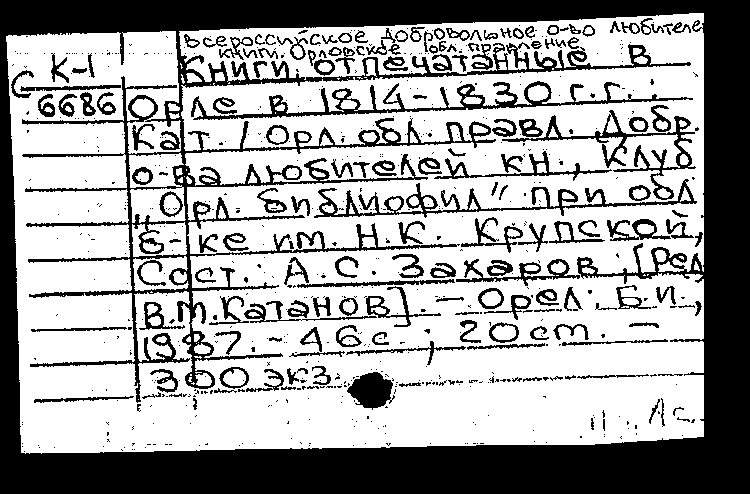 Всероссийское добровольное о-во любителе
книги. Орловское обл. правление
К-1 Книги, отпечатанные в
С 6686 Орле в 1814-1830 г.г. :
Кат. / Орл. обл. правл. Добр.
о-ва любителей кн., Клуб
„Орл. библиофил" при обл
б-ке им. Н.К. Крупской;
Сост.: А.С. Захаров ; [Ред
В.М. Катанов]. — Орел: Б.И.,
1987. - 46 с. ; 20 см. —
300 экз.
Ас.